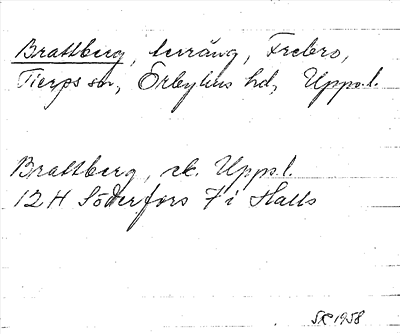 Brattberg, terräng, Frebro,
Tierps sn, Örbyhus hd, Upps.l.
Brattberg, sk. Upps.l.
12H Söderfors 7 i Halls
SK 1958